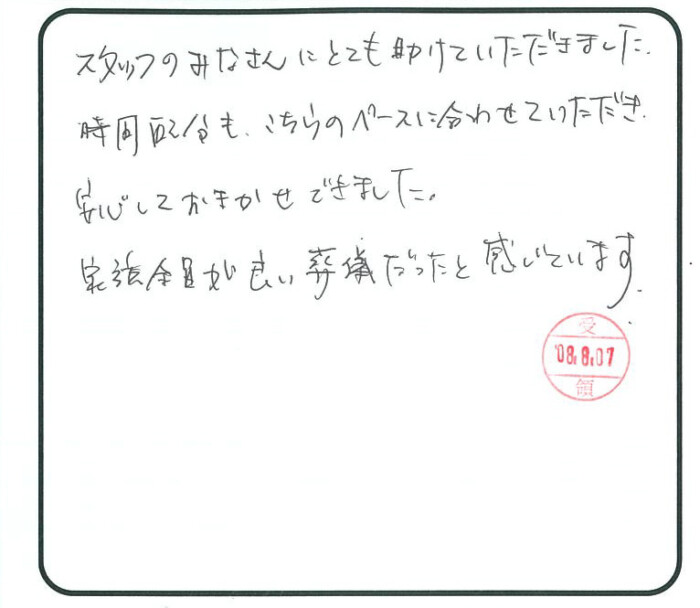 スタッフのみなさんにとても助けていただきました.
時間配分も、こちらのペースに合わせていただき
安心しておまかせできました。
家族全員が良い葬儀だったと感じています.
受
'08.8.07
領